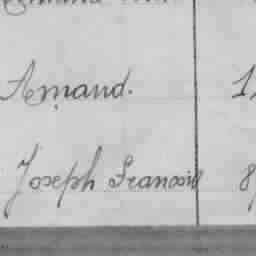 Amand. 1
Joseph Francois 8